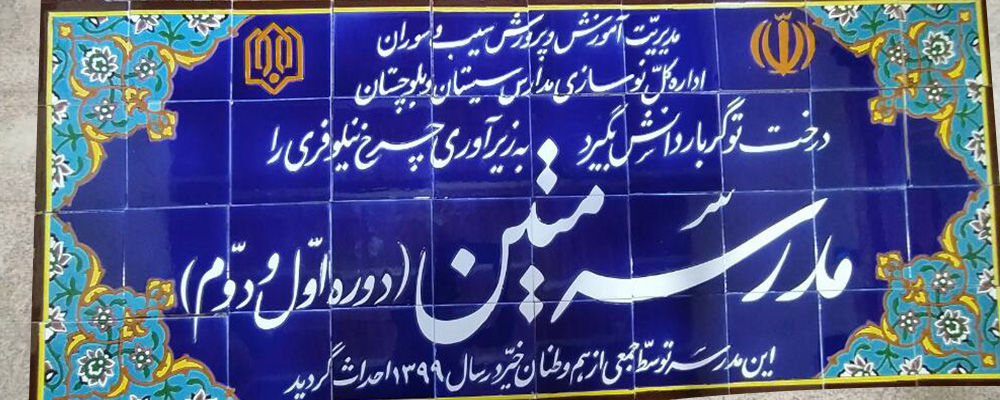 مدیریّت آموزش و پرورش سیب و سوران
اداره کلّ نوسازی مدارس سیستان و بلوچستان
درخت تو گر بار دانش بگیرد به زیر آوری چرخ نیلوفری را
مدرسه متین (دوره اوّل و دوّم)
این مدرسه توسّط جمعی از هم وطنان خیّر در سال ۱۳۹۹ احداث گردید